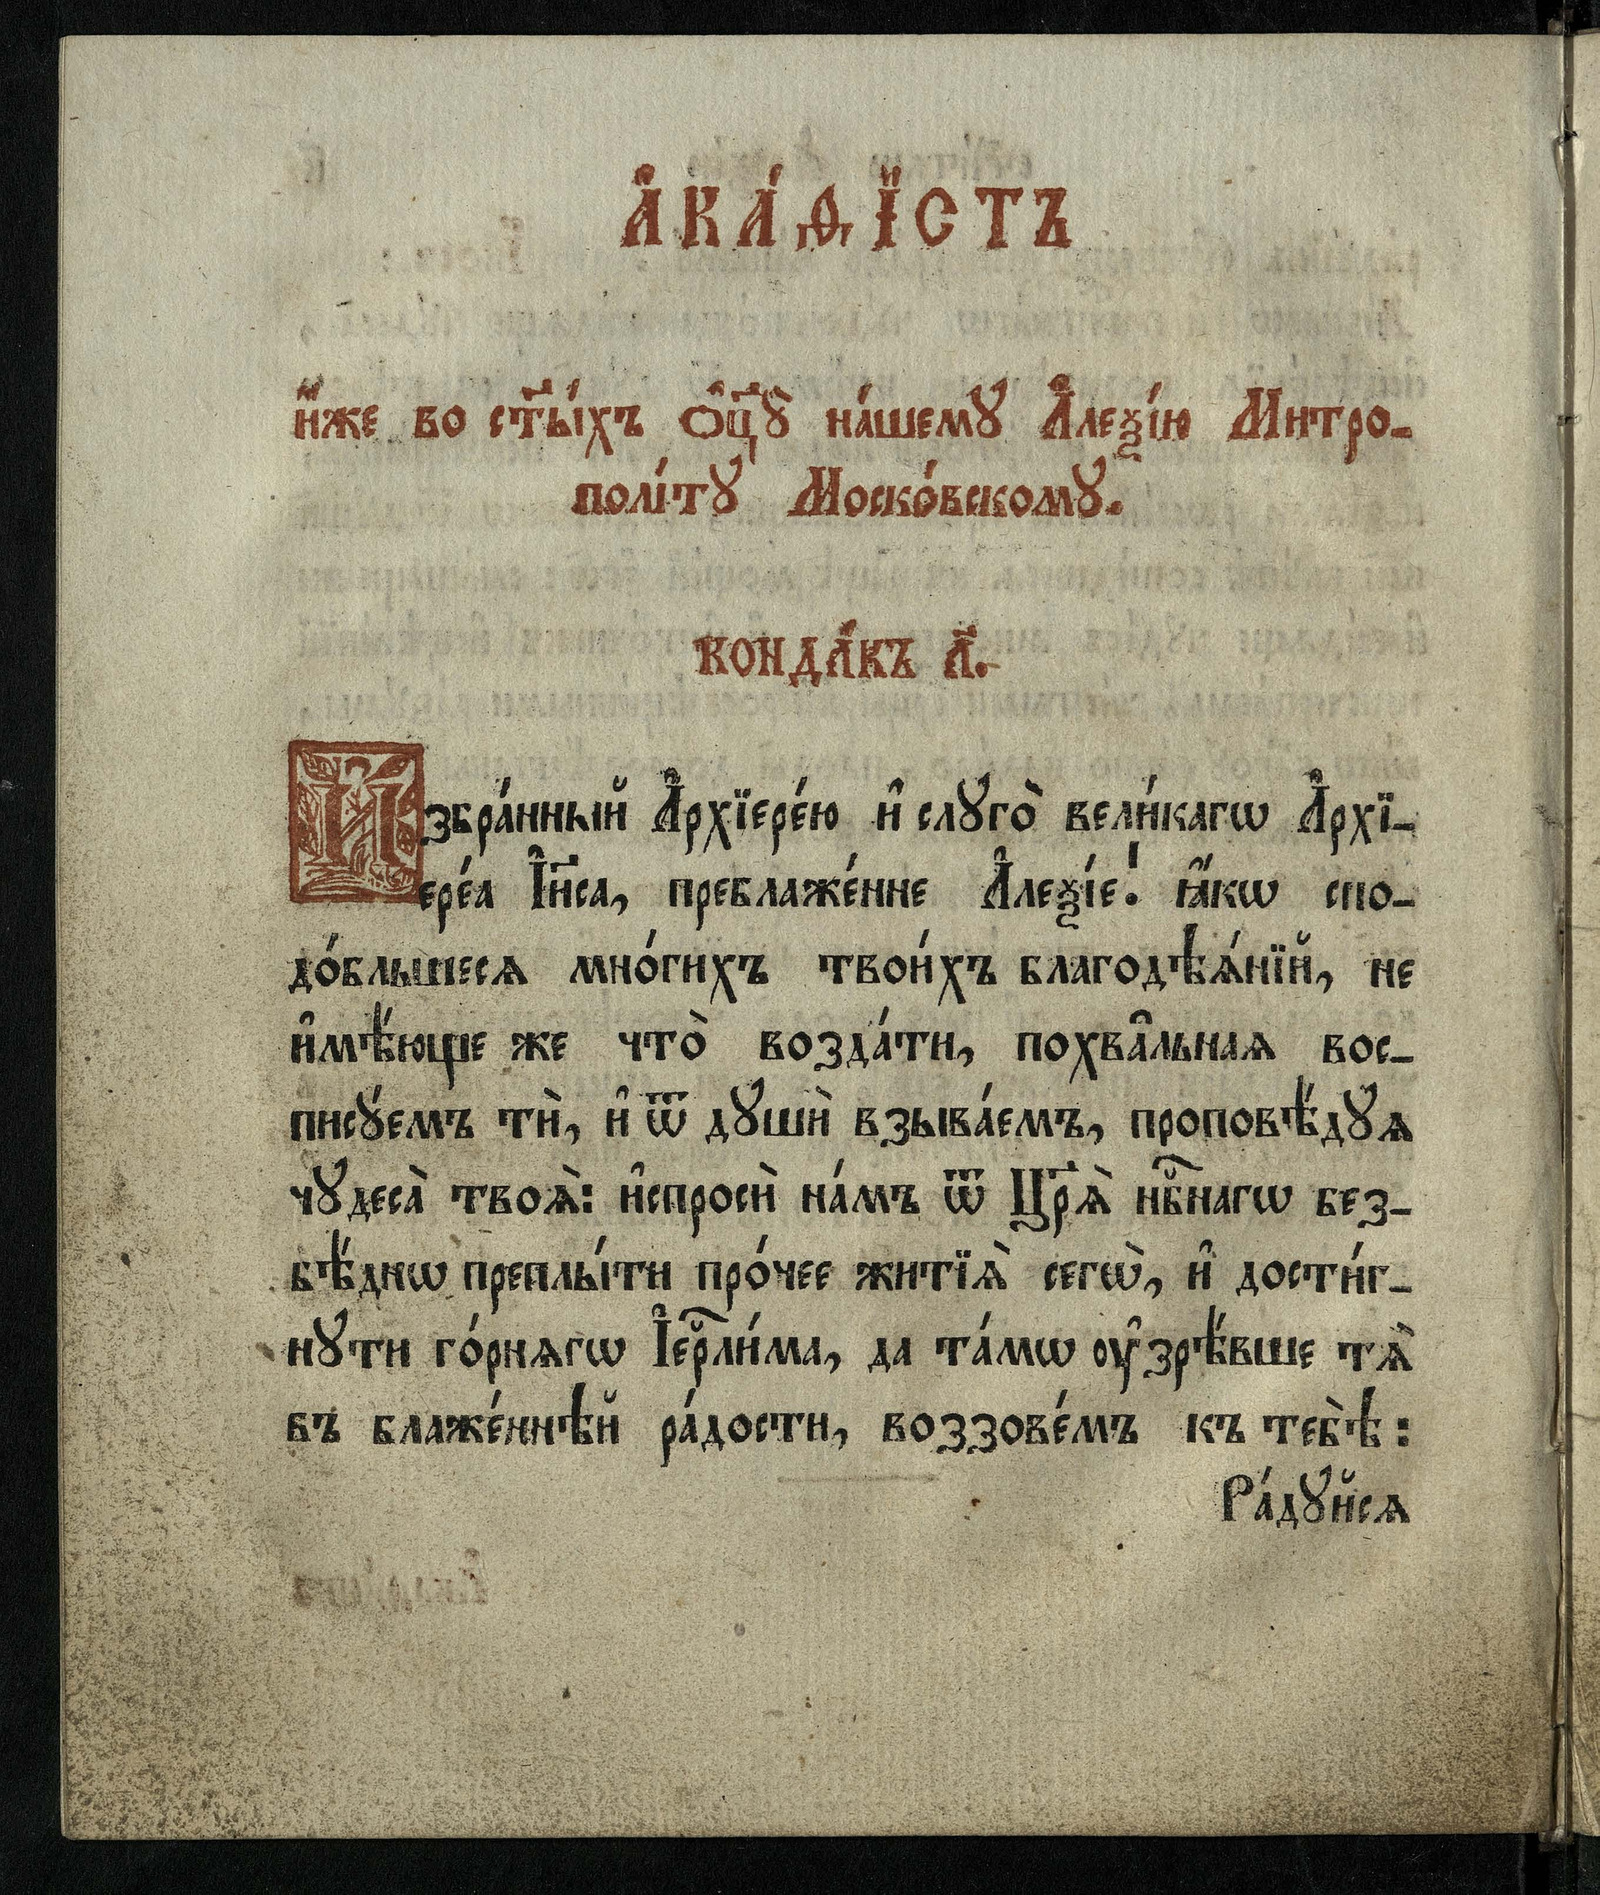 А҆КА́Ѳ҆ЇСТЪ
И҆́же во ст҃ы́хъ Ѻ҆ц҃ꙋ̀ на́шемꙋ А҆леѯі́ю Митро-
полі́тꙋ Моско́вскомꙋ.
КОНДА́КЪ А҃.
И҆збра́нный А҆рхїере́ю и҆ слꙋго̀ вели́кагѡ А҆рхї-
ере́а І҆и҃са, преблаже́нне А҆леѯі́е! ꙗ҆́кѡ спо-
до́бльшеся мно́гихъ твои́хъ благодѣѧ́нїй, не
и҆мѣ́юще же что̀ возда́ти, похва̑льнаѧ вос-
писꙋ́емъ тѝ, и҆ ѿ дꙋшѝ взыва́емъ, проповѣ́дꙋѧ
чꙋдеса̀ твоѧ̀: и҆спросѝ на́мъ ѿ Цр҃ѧ̀ нбⷭ҇нагѡ без-
бѣ́днѡ преплы́ти про́чее житїѧ̀ сегѡ̀, и҆ дости́г-
нꙋти го́рнѧгѡ І҆ерⷭ҇ли́ма, да та́мѡ ᲂу҆зрѣ́вше тѧ̀
въ блаже́ннѣй ра́дости, воззове́мъ къ тебѣ̀:
Ра́дꙋйсѧ